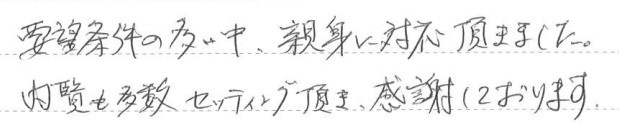 要望条件の多い中、親身に対応頂きました。
内覧も多数セッティング頂き、感謝しております.